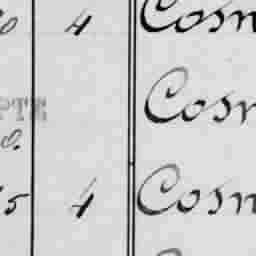 0 4 Cosm
Cosm
PTE
o.
5 4 Cosm